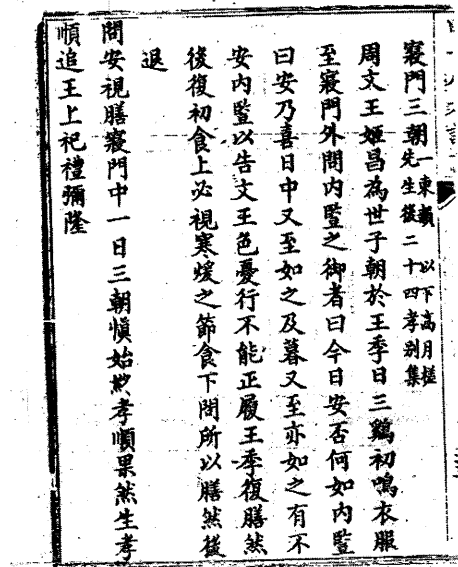 寢門三朝 一東韻 以下高月槎先生後二十四孝別集
周文王姬昌為世子朝於王季日三鷄初鳴衣服
至寢門外問內監之御者曰今日安否何如內監
曰安乃喜日中又至如之及暮又至亦如之有不
安內監以告文王色憂行不能正履王季復膳然
後復初食上必視寒煖之節食下問所以膳然後
退
問安視膳寢門中一日三朝慎始終孝順果然生孝
順追王上祀禮彌隆